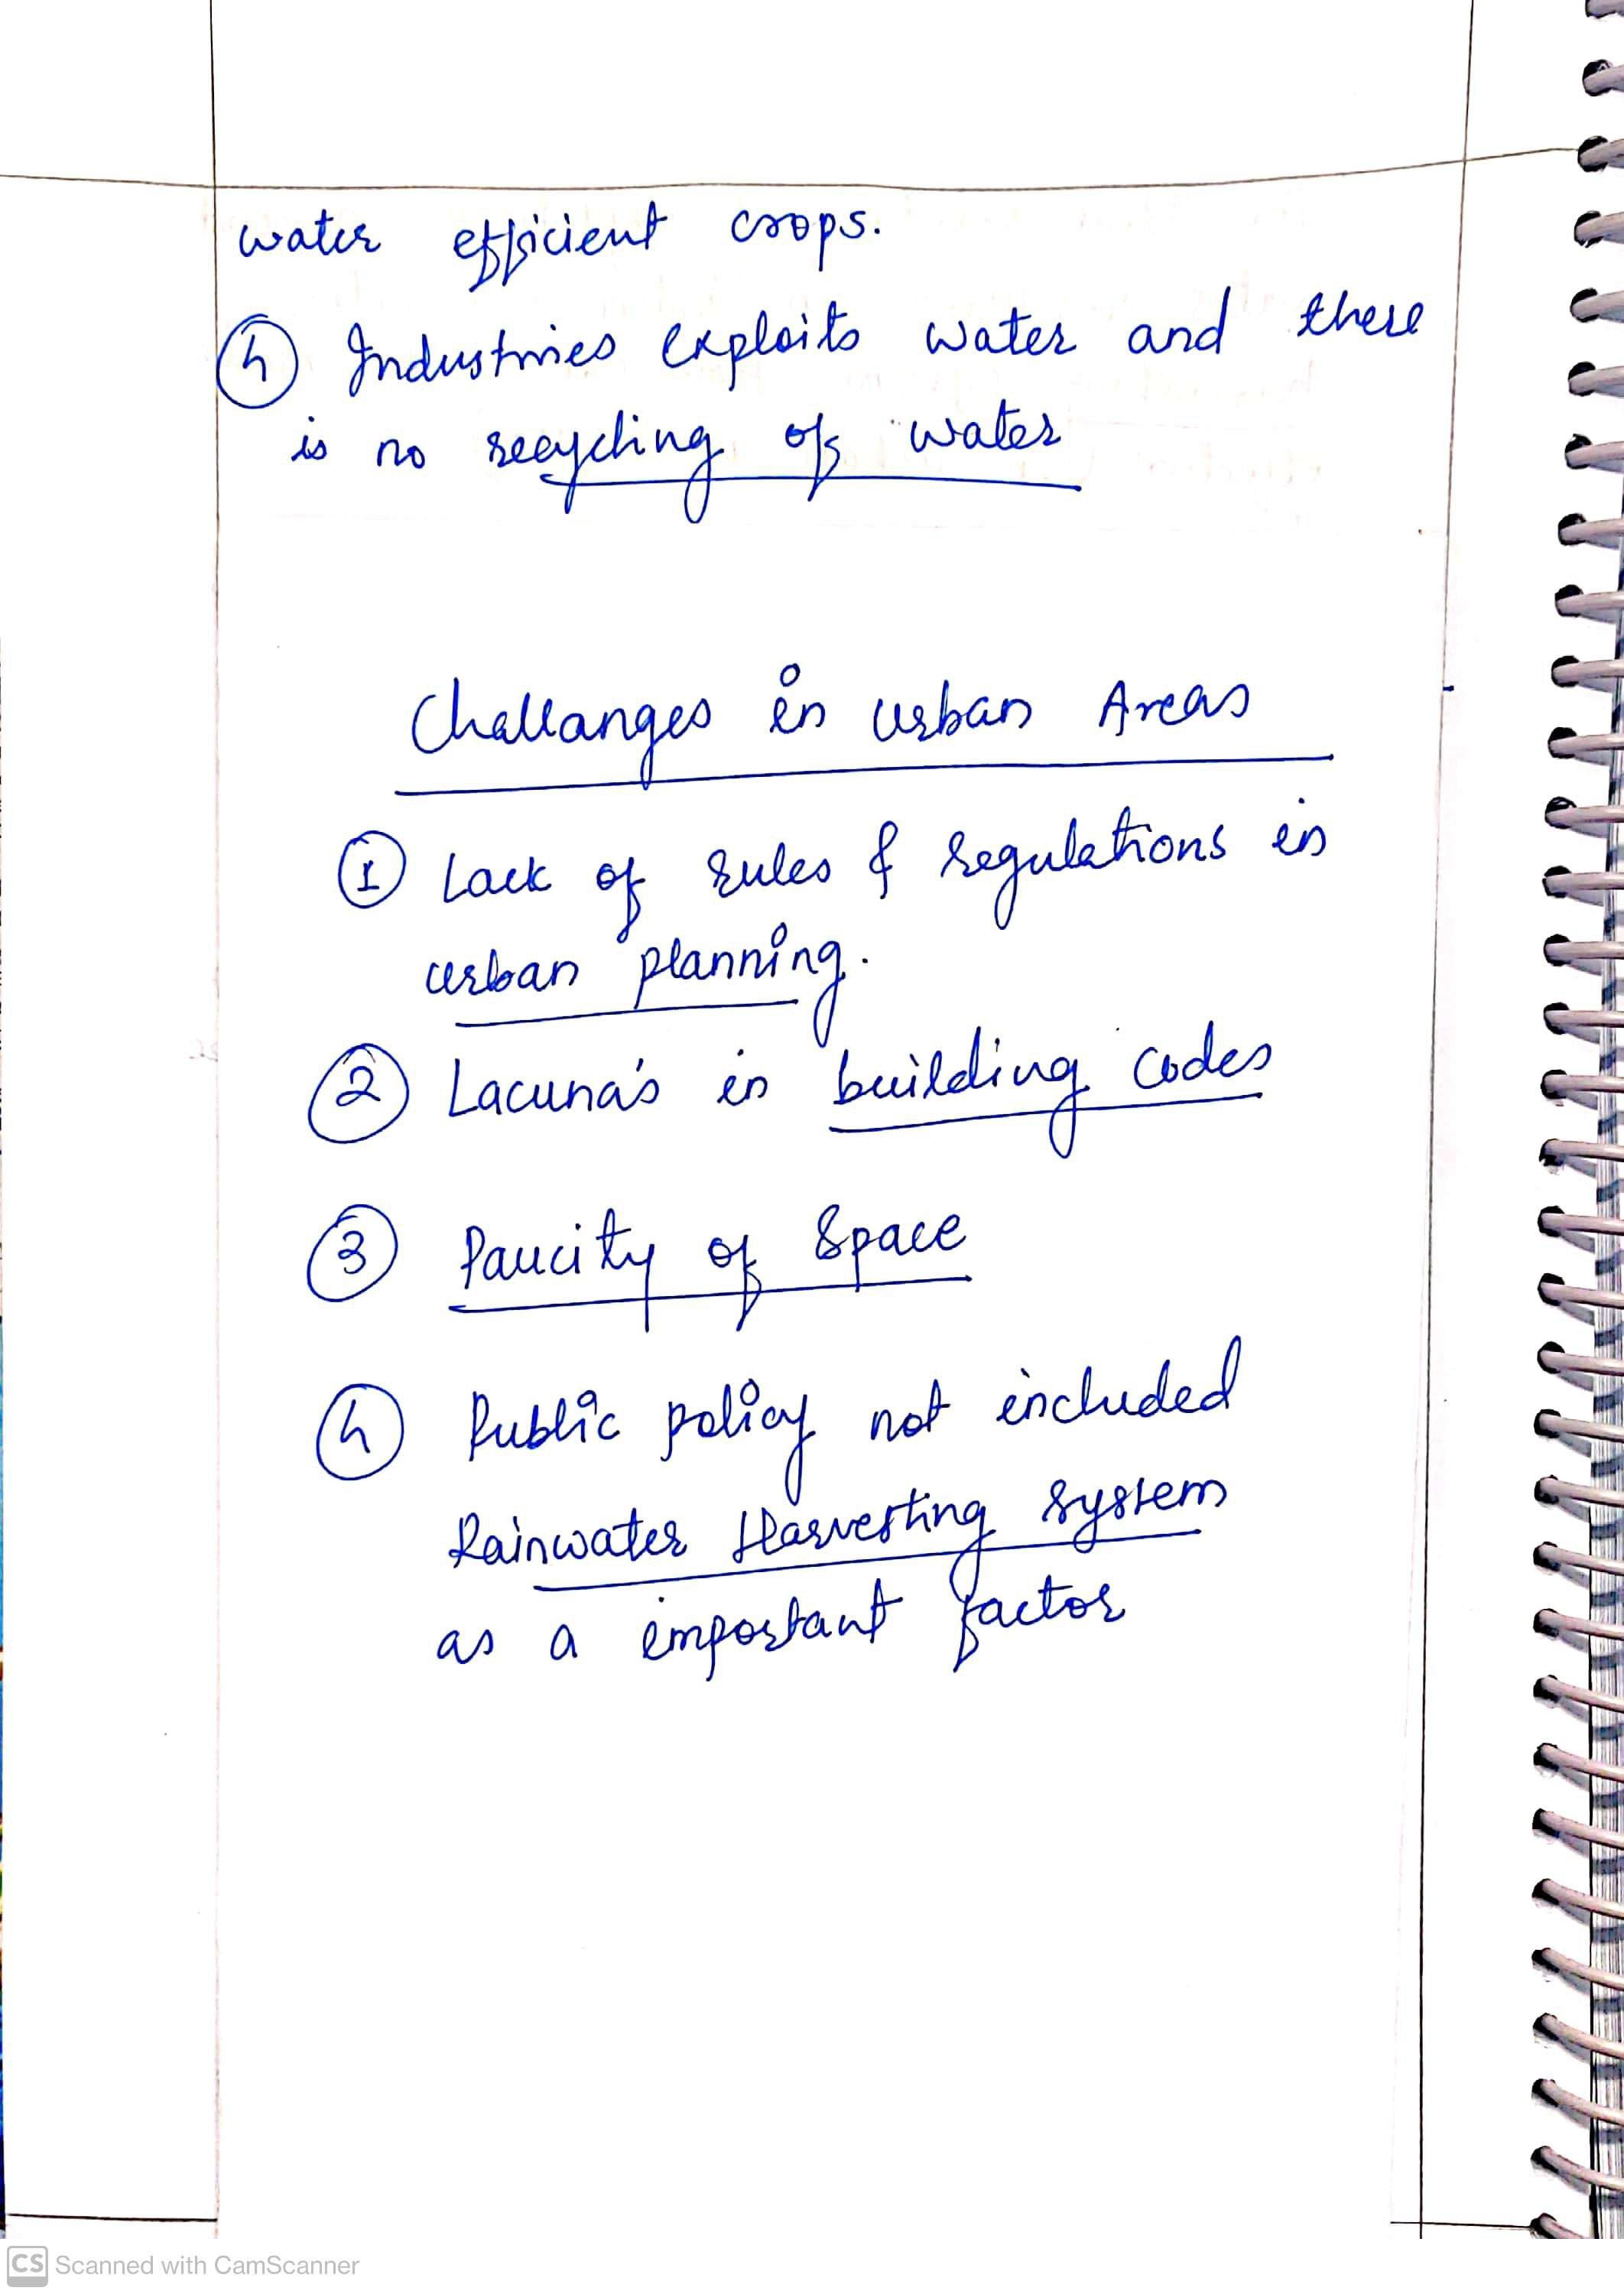 water efficient crops.
④ Industries exploits water and there
is no recycling of water
Challanges in urban Areas
① Lack of rules & regulations in
urban planning.
② Lacuna's in building codes
③ Paucity of Space
④ Public policy not included
Rainwater Harvesting system
as a important factor
CS Scanned with CamScanner